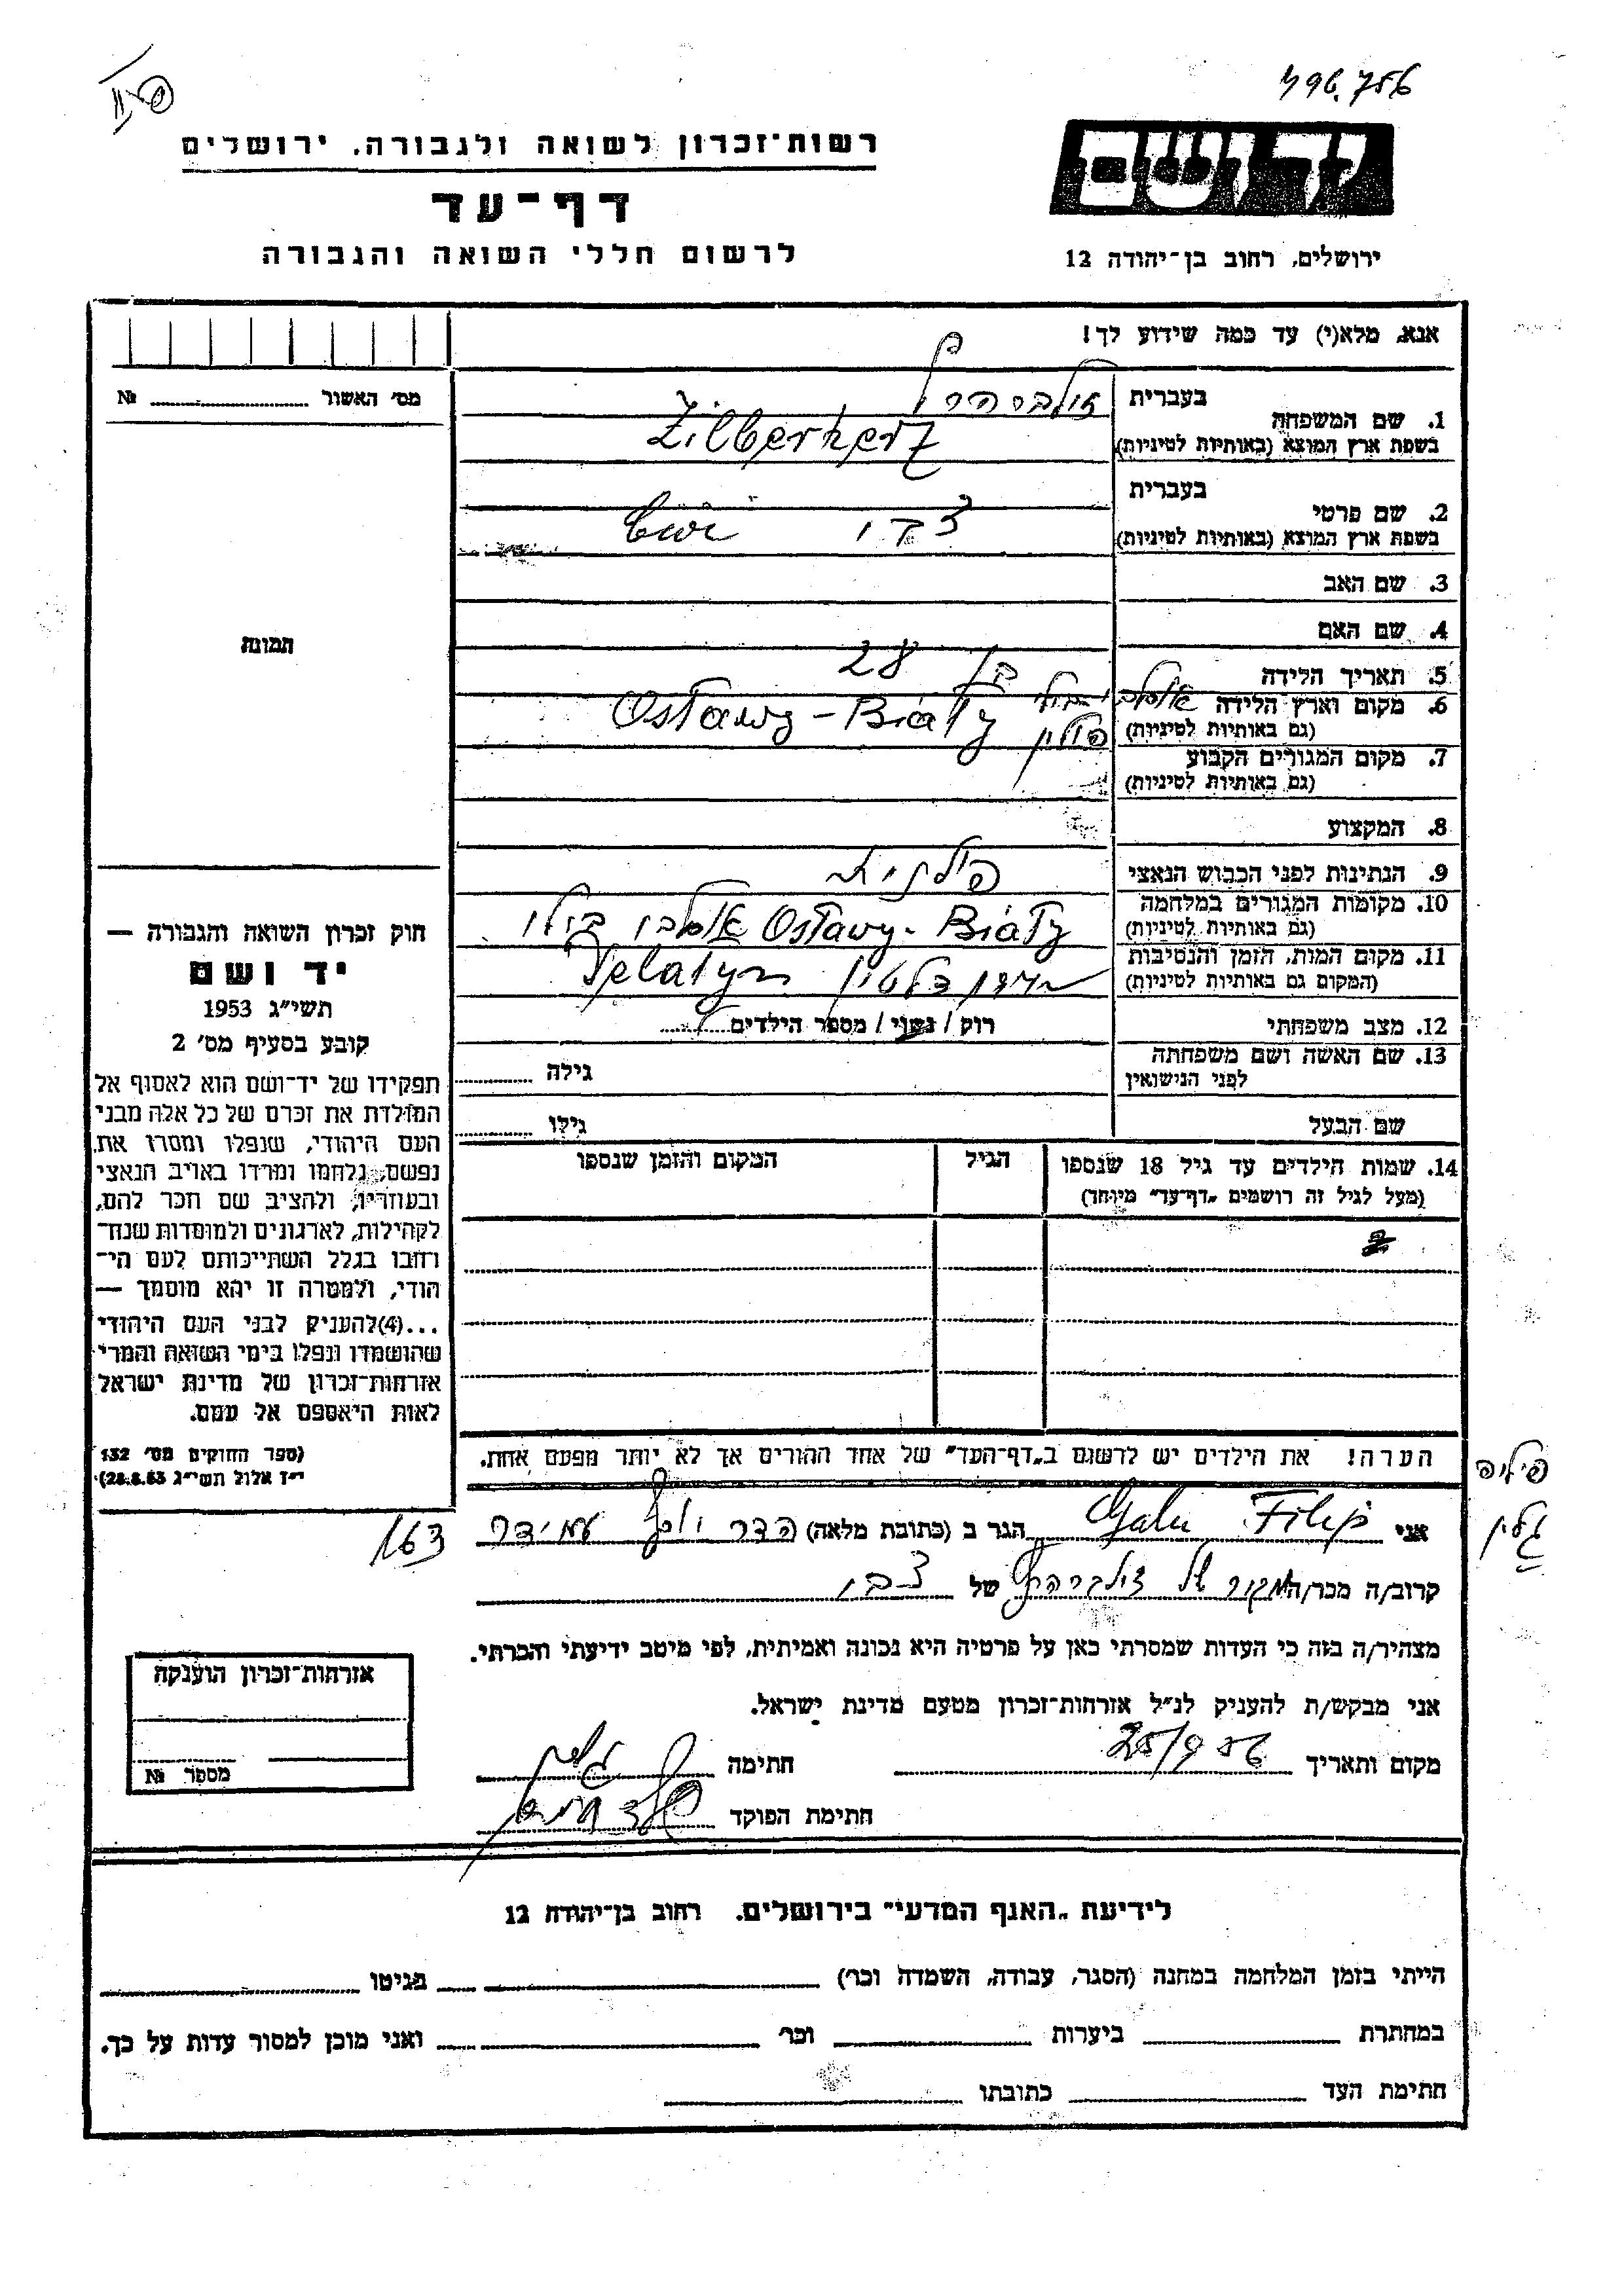 רשות־זכרון לשואה ולגבורה, ירושלים
דף־עד
לרשום חללי השואה והגבורה
ידושם
ירושלים, רחוב בן־יהודה 12
אנא, מלא(י) עד כמה שידוע לך!
מס׳ האשור № 
1. שם המשפחה בעברית
בשפת ארץ המוצא (באותיות לטיניות) Zilberherz
2. שם פרטי בעברית
צבי
בשפת ארץ המוצא (באותיות לטיניות)
3. שם האב
4. שם האם
5. תאריך הלידה בן 28
6. מקום וארץ הלידה
(גם באותיות לטיניות) Ostawy-Biały פולין
7. מקום המגורים הקבוע
(גם באותיות לטיניות)
8. המקצוע
9. הנתינות לפני הכבוש הנאצי פולנית
10. מקומות המגורים במלחמה
(גם באותיות לטיניות) Ostawy-Biały
11. מקום המות, הזמן והנסיבות
(המקום גם באותיות לטיניות) Delatyn
12. מצב משפחתי רוק / נשוי / מספר הילדים
13. שם האשה ושם משפחתה
לפני הנישואין גילה
שם הבעל גילו
14. שמות הילדים עד גיל 18 שנספו הגיל המקום והזמן שנספו
(מעל לגיל זה רושמים „דף־עד״ מיוחד)
הערה! את הילדים יש לרשום ב„דף־העד״ של אחד ההורים אך לא יותר מפעם אחת.
תמונה
חוק זכרון השואה והגבורה —
יד ושם
תשי״ג 1953
קובע בסעיף מס׳ 2
תפקידו של יד־ושם הוא לאסוף אל
המולדת את זכרם של כל אלה מבני
העם היהודי, שנפלו ומסרו את
נפשם, נלחמו ומרדו באויב הנאצי
ובעוזריו, ולהציב שם וזכר להם,
לקהילות, לארגונים ולמוסדות שנח־
רבו בגלל השתייכותם לעם הי־
הודי, ולמטרה זו יהא מוסמך —
...(4)להעניק לבני העם היהודי
שהושמדו ונפלו בימי השואה והמרי
אזרחות־זכרון של מדינת ישראל
לאות היאספם אל עמם.
(ספר החוקים מס׳ 132
י״ז אלול תשי״ג 28.8.53)
פיליפ
גלין
163
אני Galin Filip הגר ב (כתובת מלאה) הדר יוסף עמידר
קרוב/ה מכר/ה של צבי
מצהיר/ה בזה כי העדות שמסרתי כאן על פרטיה היא נכונה ואמיתית, לפי מיטב ידיעתי והכרתי.
אני מבקש/ת להעניק לנ״ל אזרחות־זכרון מטעם מדינת ישראל.
מקום ותאריך 25/9 56 חתימה
חתימת הפוקד
אזרחות־זכרון הוענקה
מספר №
לידיעת „האגף המדעי״ בירושלים, רחוב בן־יהודה 12
הייתי בזמן המלחמה במחנה (הסגר, עבודה, השמדה וכר׳) בגיטו
במחתרת ביערות וכר׳ ואני מוכן למסור עדות על כך.
חתימת העד כתובתו